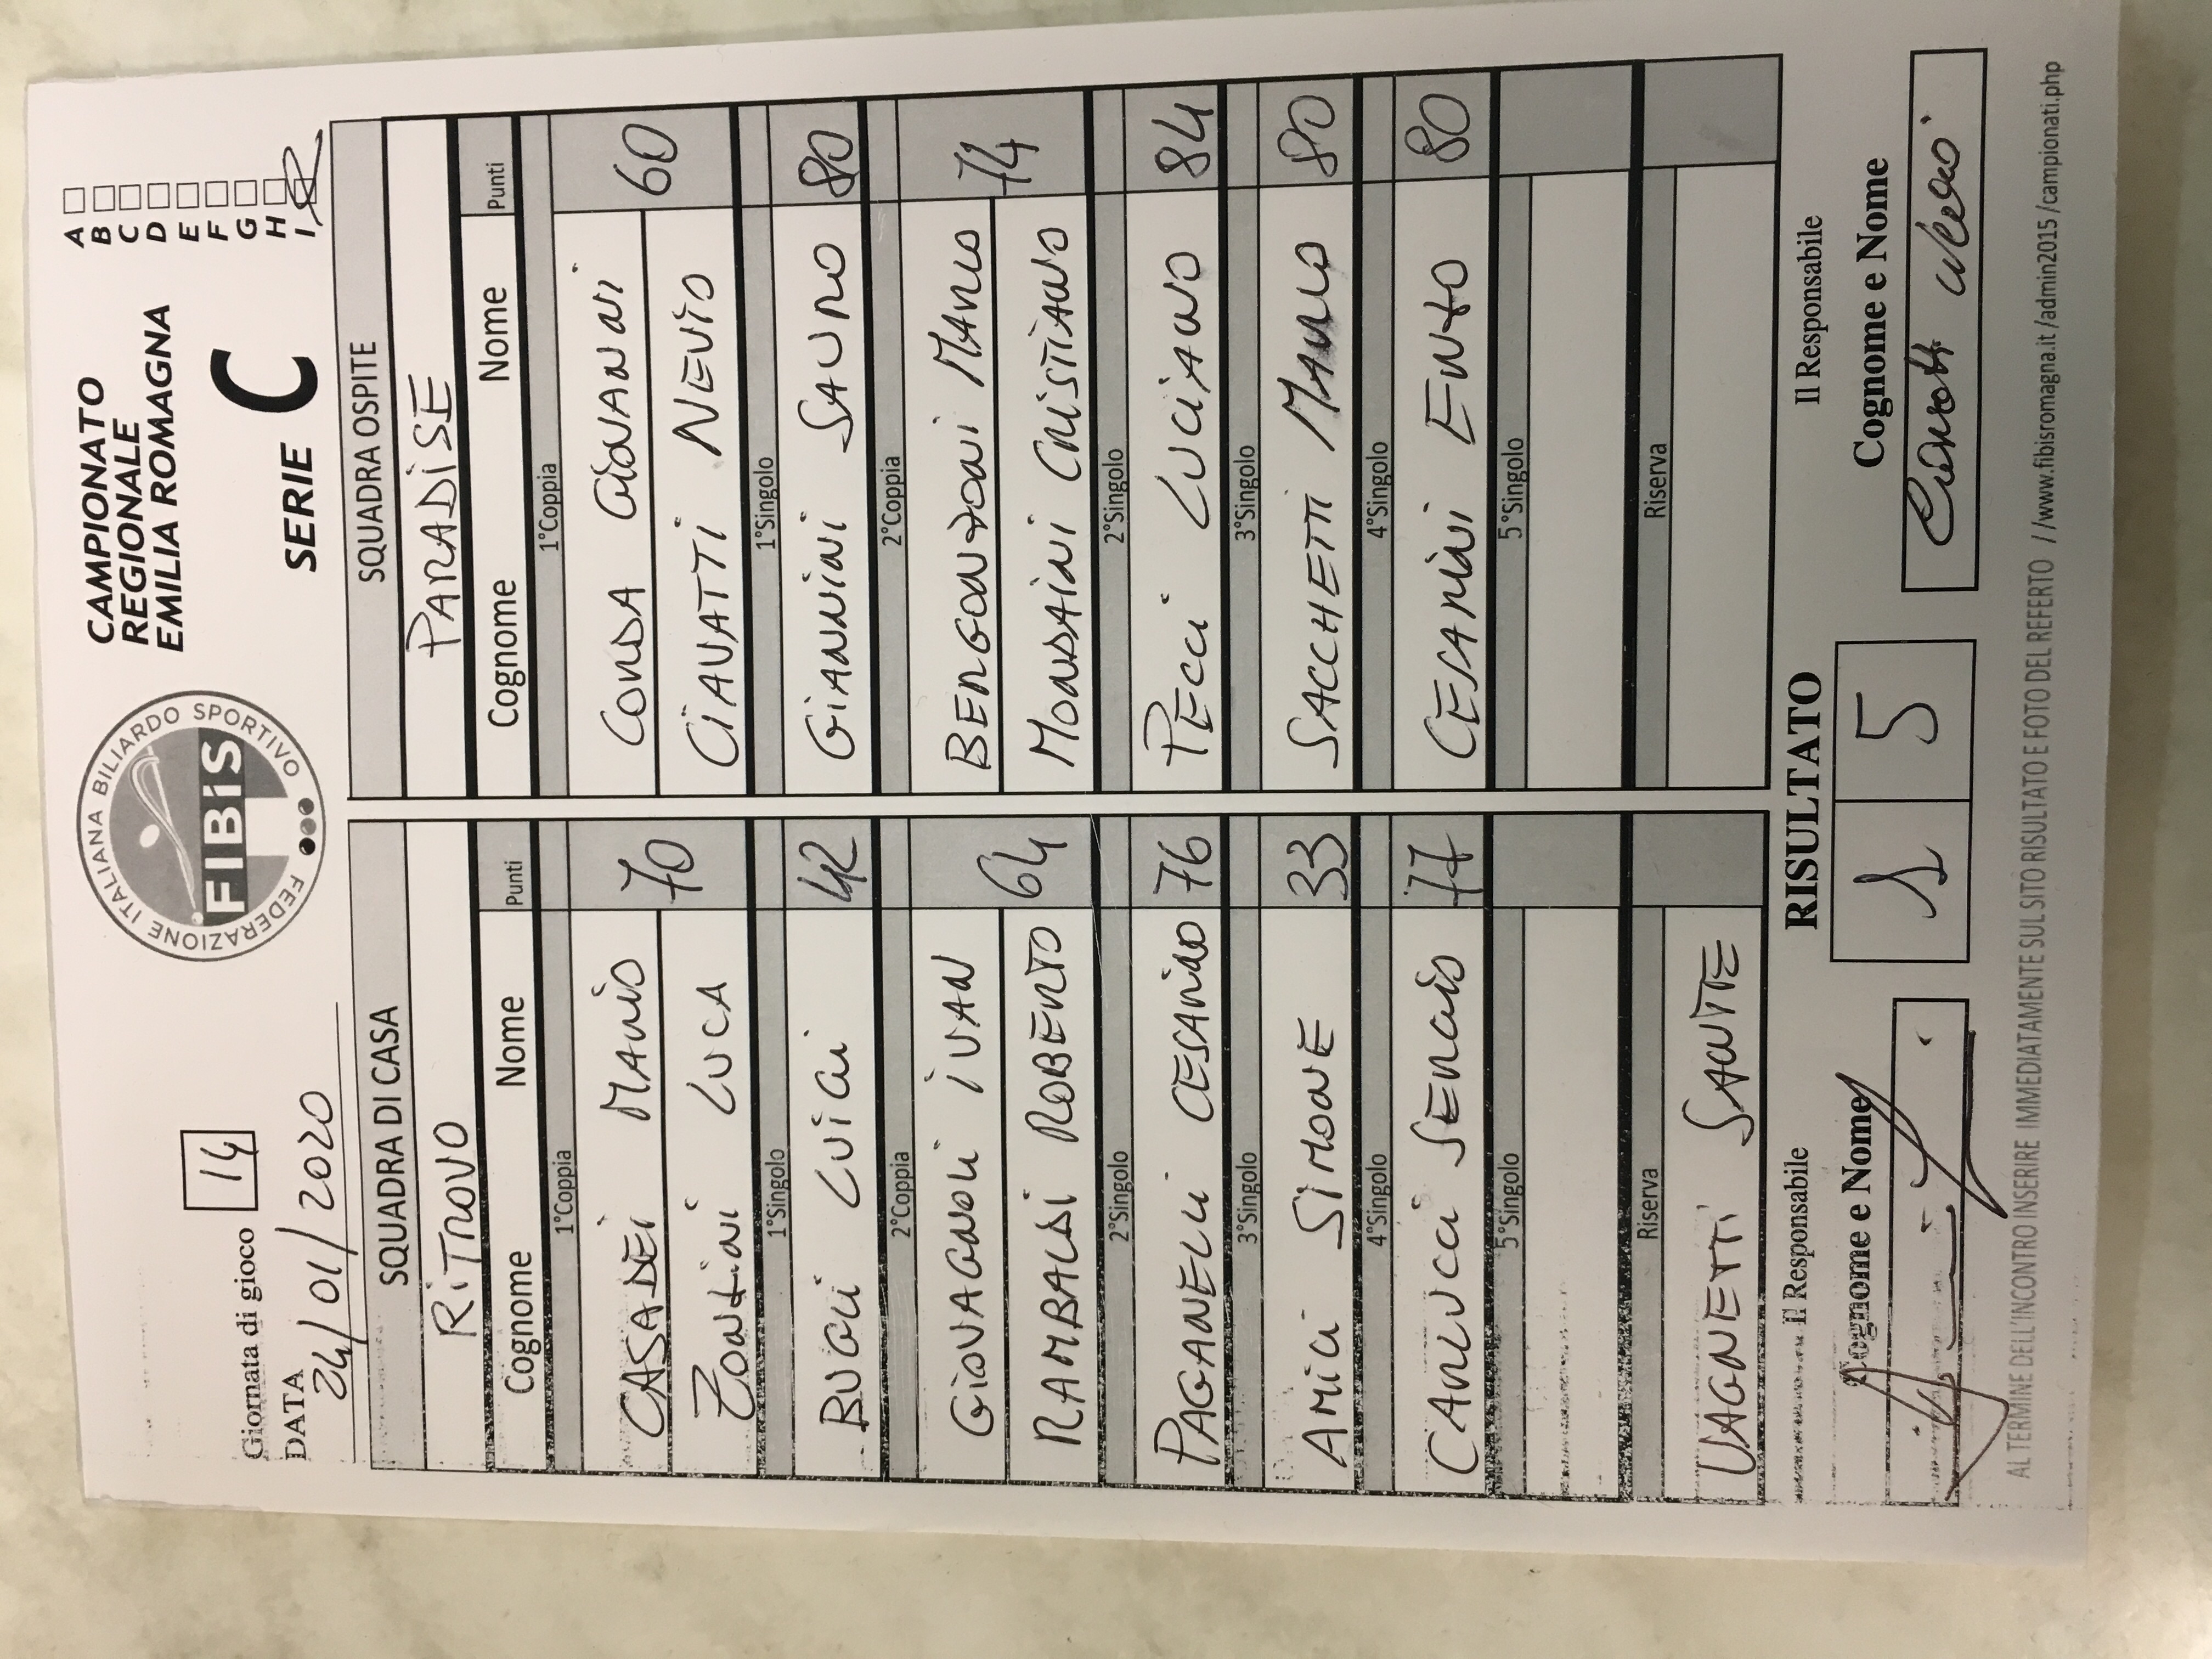 Giornata di gioco 14
DATA 24/01/2020
FEDERAZIONE ITALIANA BILIARDO SPORTIVO
FIBiS
CAMPIONATO
REGIONALE
EMILIA ROMAGNA
SERIE C
A
B
C
D
E
F
G
H
I
SQUADRA DI CASA
RiTROVO
Cognome Nome Punti
1°Coppia
CASADEI MARIO 70
ZONZINI LUCA
1°Singolo
BUGLI LUIGI 42
2°Coppia
GIOVAGNOLI IVAN 64
RAMBALDI ROBERTO
2°Singolo
PAGANELLI CESARINO 76
3°Singolo
AMICI SIMONE 33
4°Singolo
CARLUCCI SERGIO 77
5°Singolo
Riserva
VAGNETTI SANTE
SQUADRA OSPITE
PARADISE
Cognome Nome Punti
1°Coppia
CORDA GIOVANNI 60
CIAVATTI NEVIO
1°Singolo
GIANNINI SAURO 80
2°Coppia
BERGONZONI MARIO 74
MONDAINI CRISTIANO
2°Singolo
PECCI LUCIANO 84
3°Singolo
SACCHETTI MAURO 80
4°Singolo
CESARINI ENZO 80
5°Singolo
Riserva
Il Responsabile
Cognome e Nome
RISULTATO
1 5
Il Responsabile
Cognome e Nome
AL TERMINE DELL'INCONTRO INSERIRE IMMEDIATAMENTE SUL SITO RISULTATO E FOTO DEL REFERTO //www.fibisromagna.it /admin2015 /campionati.php